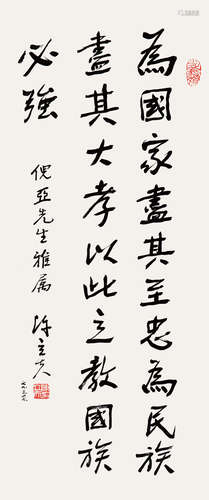 為國家盡其至忠為民族
盡其大孝以此立教國族
必強
倪亞先生雅属
陳立夫